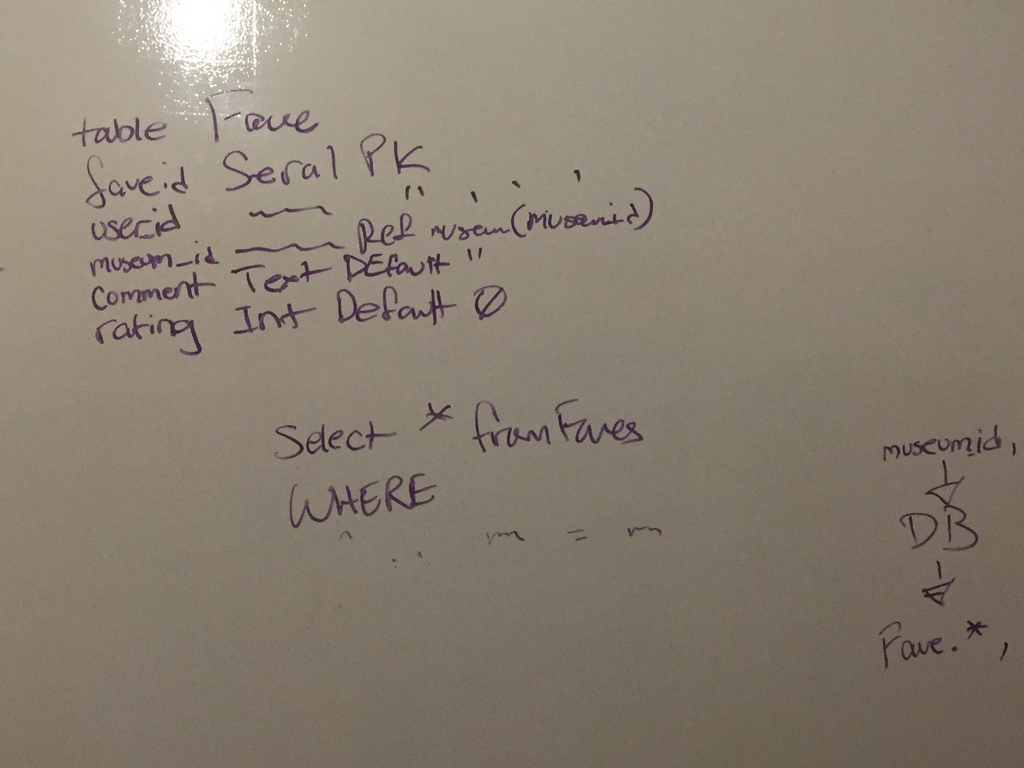 table Fave
faveid Seral PK
userid " ' ' '
museum_id Ref musem(musemid)
comment Text DEfault "
rating Int Default 0
Select * from Faves
WHERE
m = m
museumid,
DB
Fave.*,